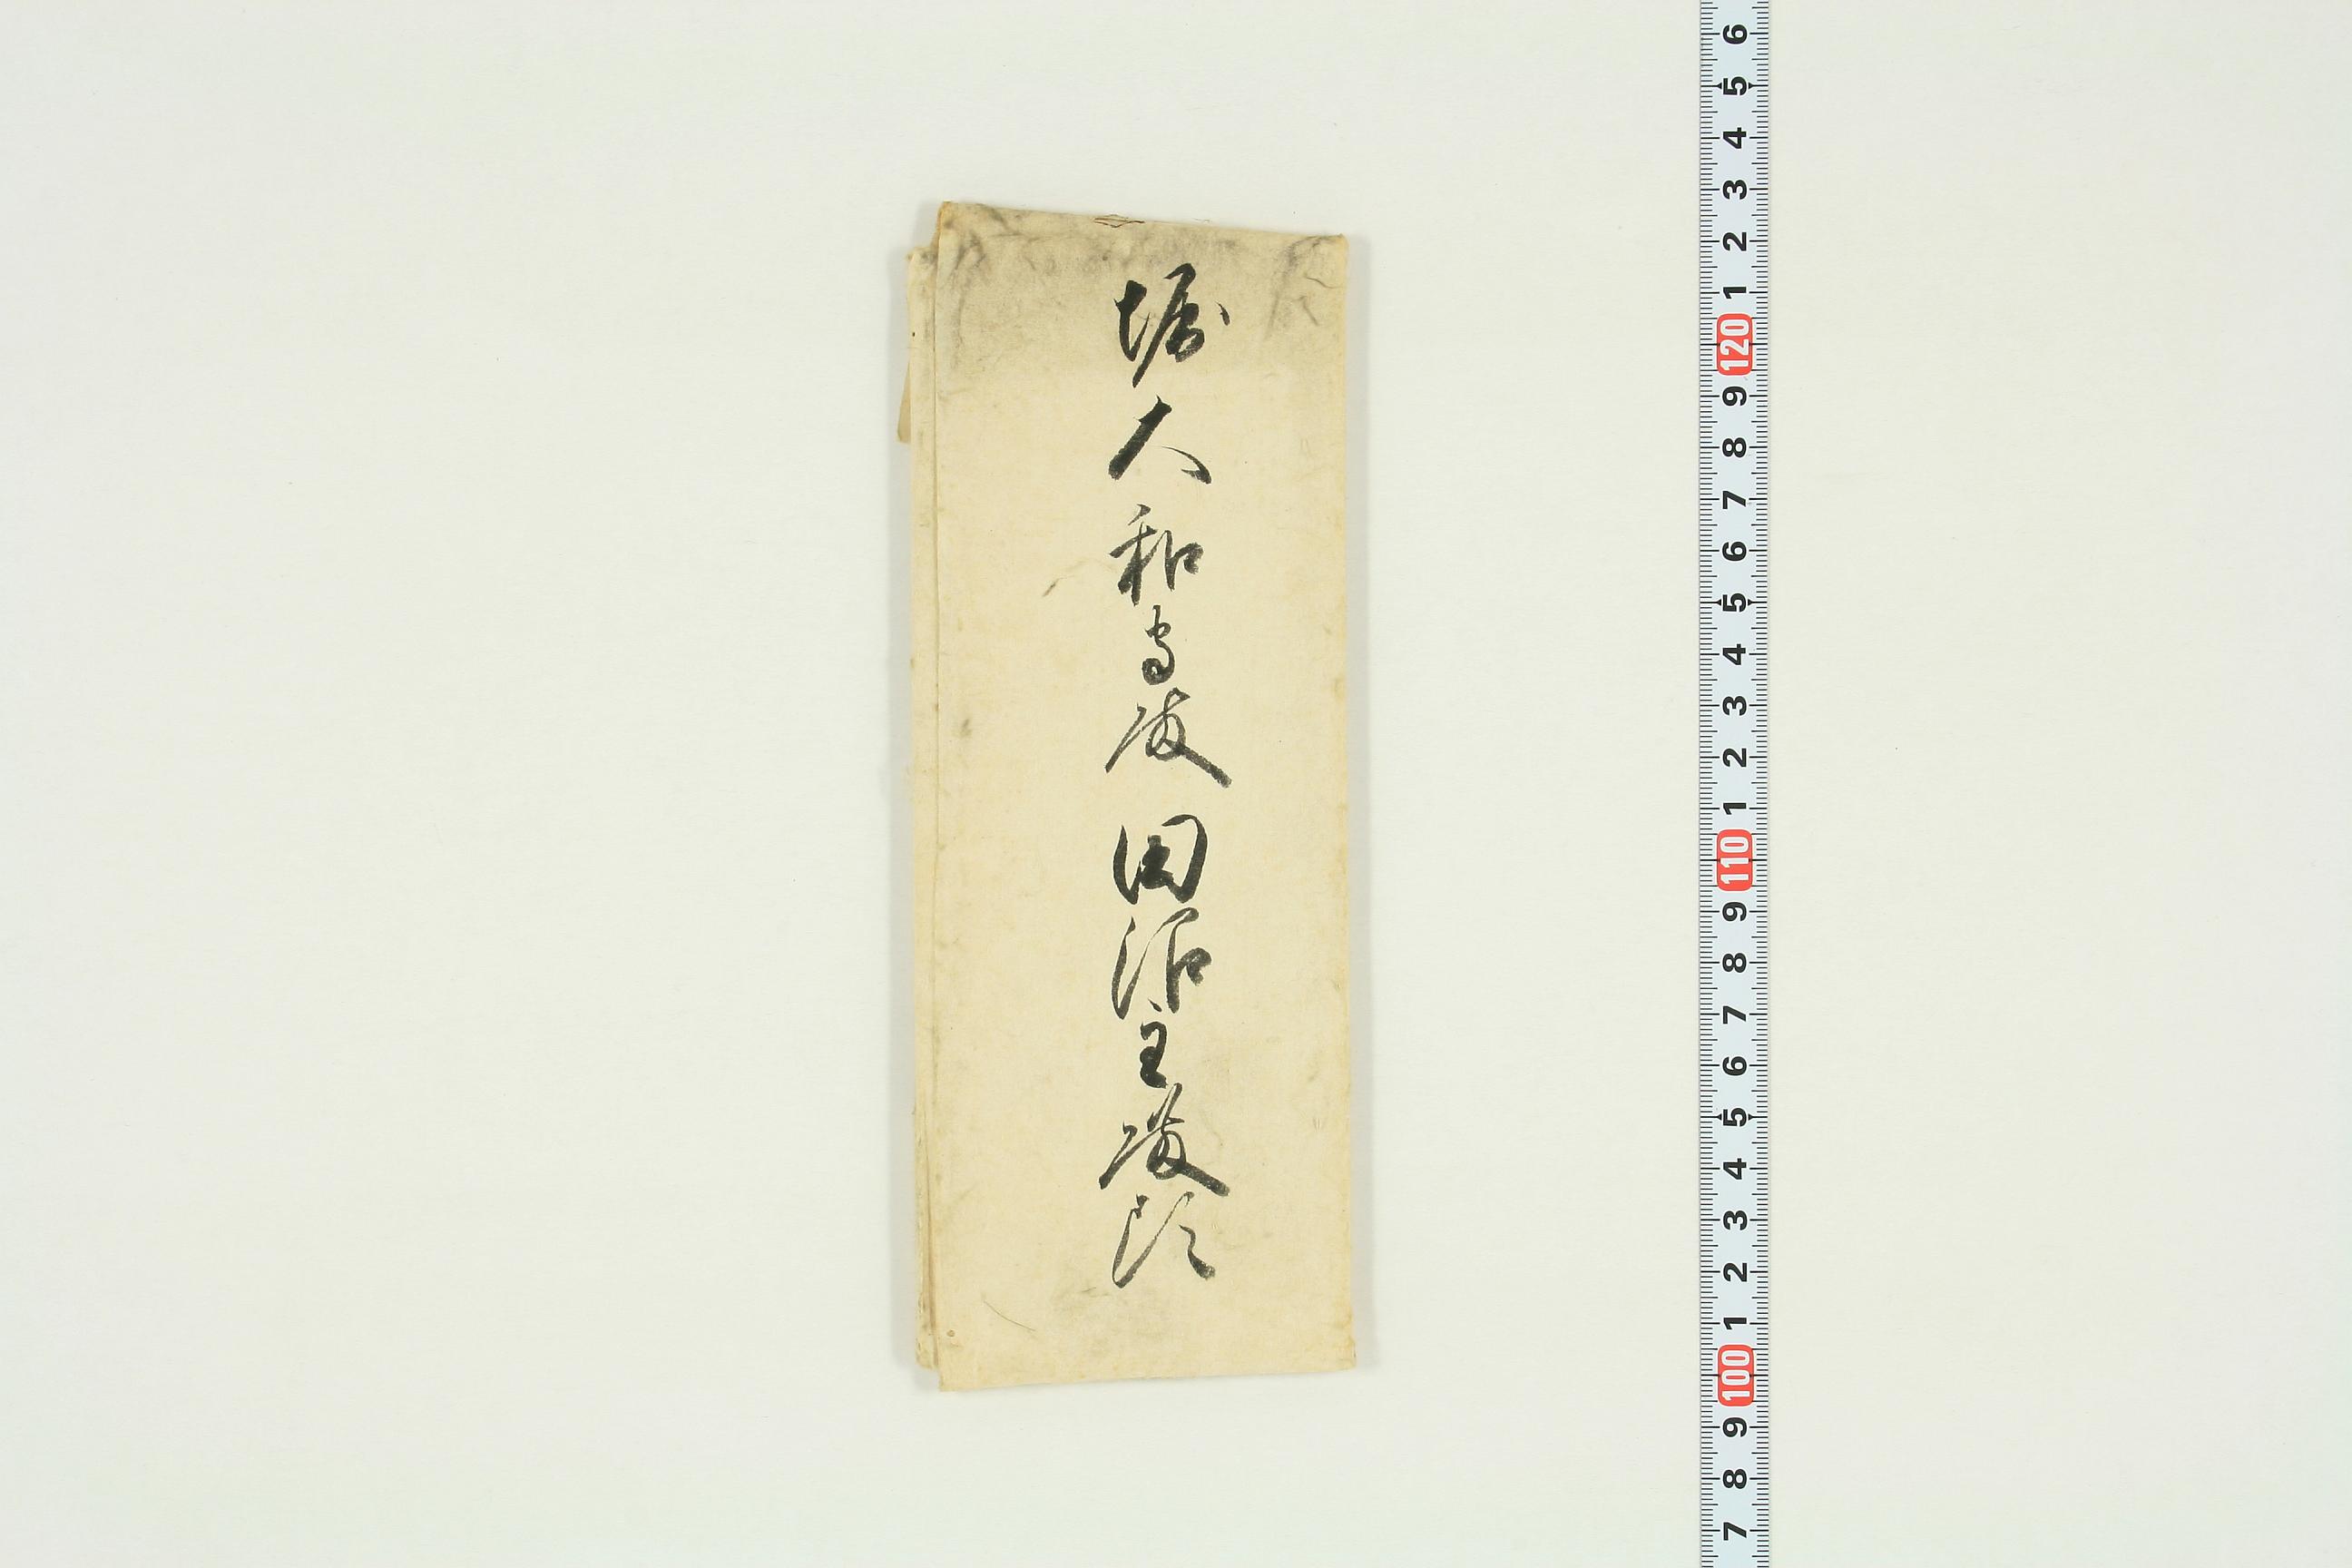 堀大和守殿 田沼主殿頭
6
5
4
3
2
1
120
9
8
7
6
5
4
3
2
1
110
9
8
7
6
5
4
3
2
1
100
9
8
7